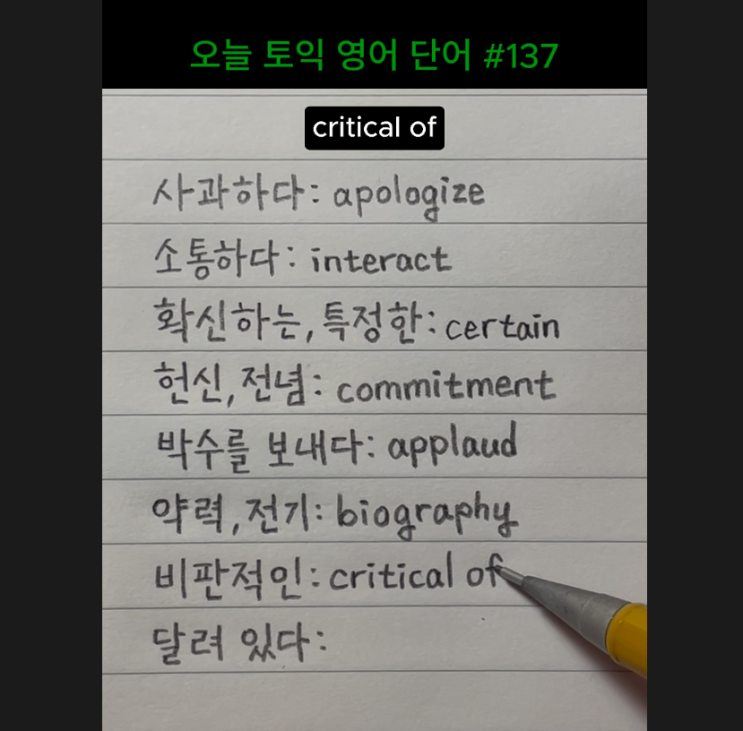 오늘 토익 영어 단어 #137
critical of
사과하다: apologize
소통하다: interact
확신하는, 특정한: certain
헌신, 전념: commitment
박수를 보내다: applaud
약력, 전기: biography
비판적인: critical of
달려 있다: